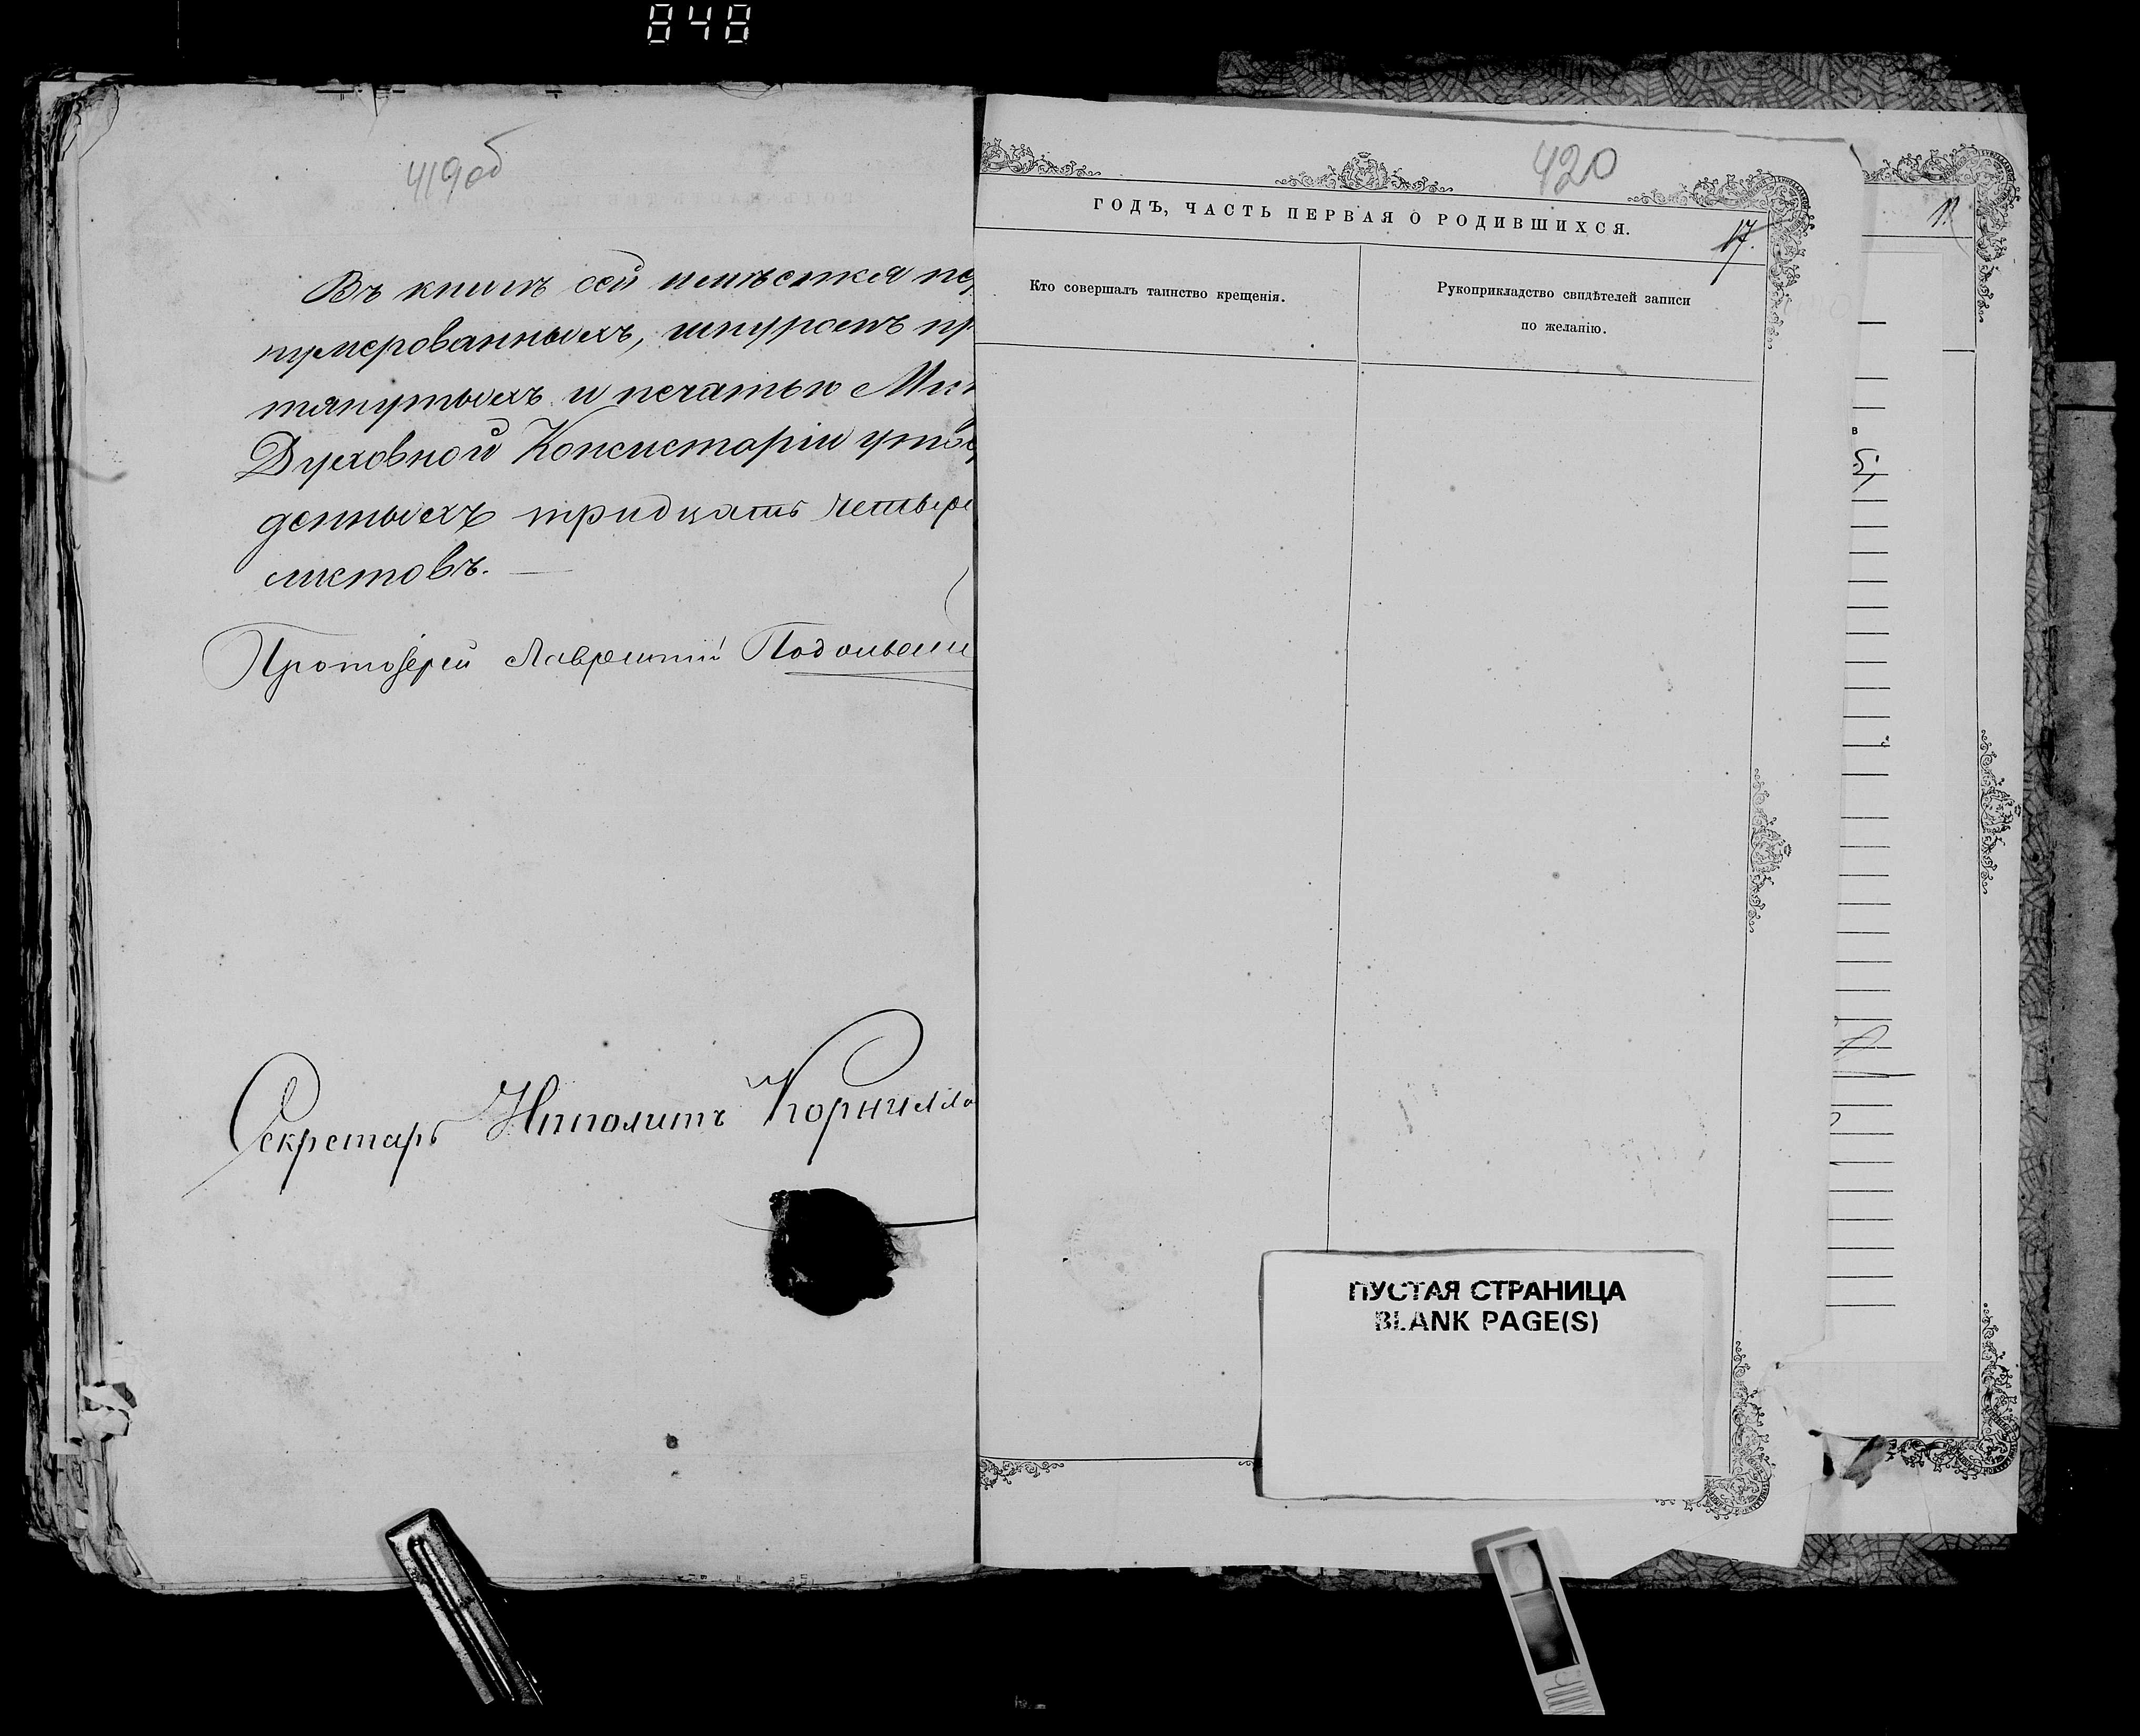 848
419об
Въ книгѣ сей имѣется пе
нумерованныхъ, шнуромъ пр
тянутыхъ и печатью Мин
Духовной Консисторіи утвер
денныхъ тридцать четыре
листовъ. —
Протоіерей Лаврентій
Секретарь Ипполитъ Корнилло
420
ГОДЪ, ЧАСТЬ ПЕРВАЯ О РОДИВШИХСЯ.
17.
Кто совершалъ таинство крещенія.
Рукоприкладство свидѣтелей записи
по желанію.
ПУСТАЯ СТРАНИЦА
BLANK PAGE(S)